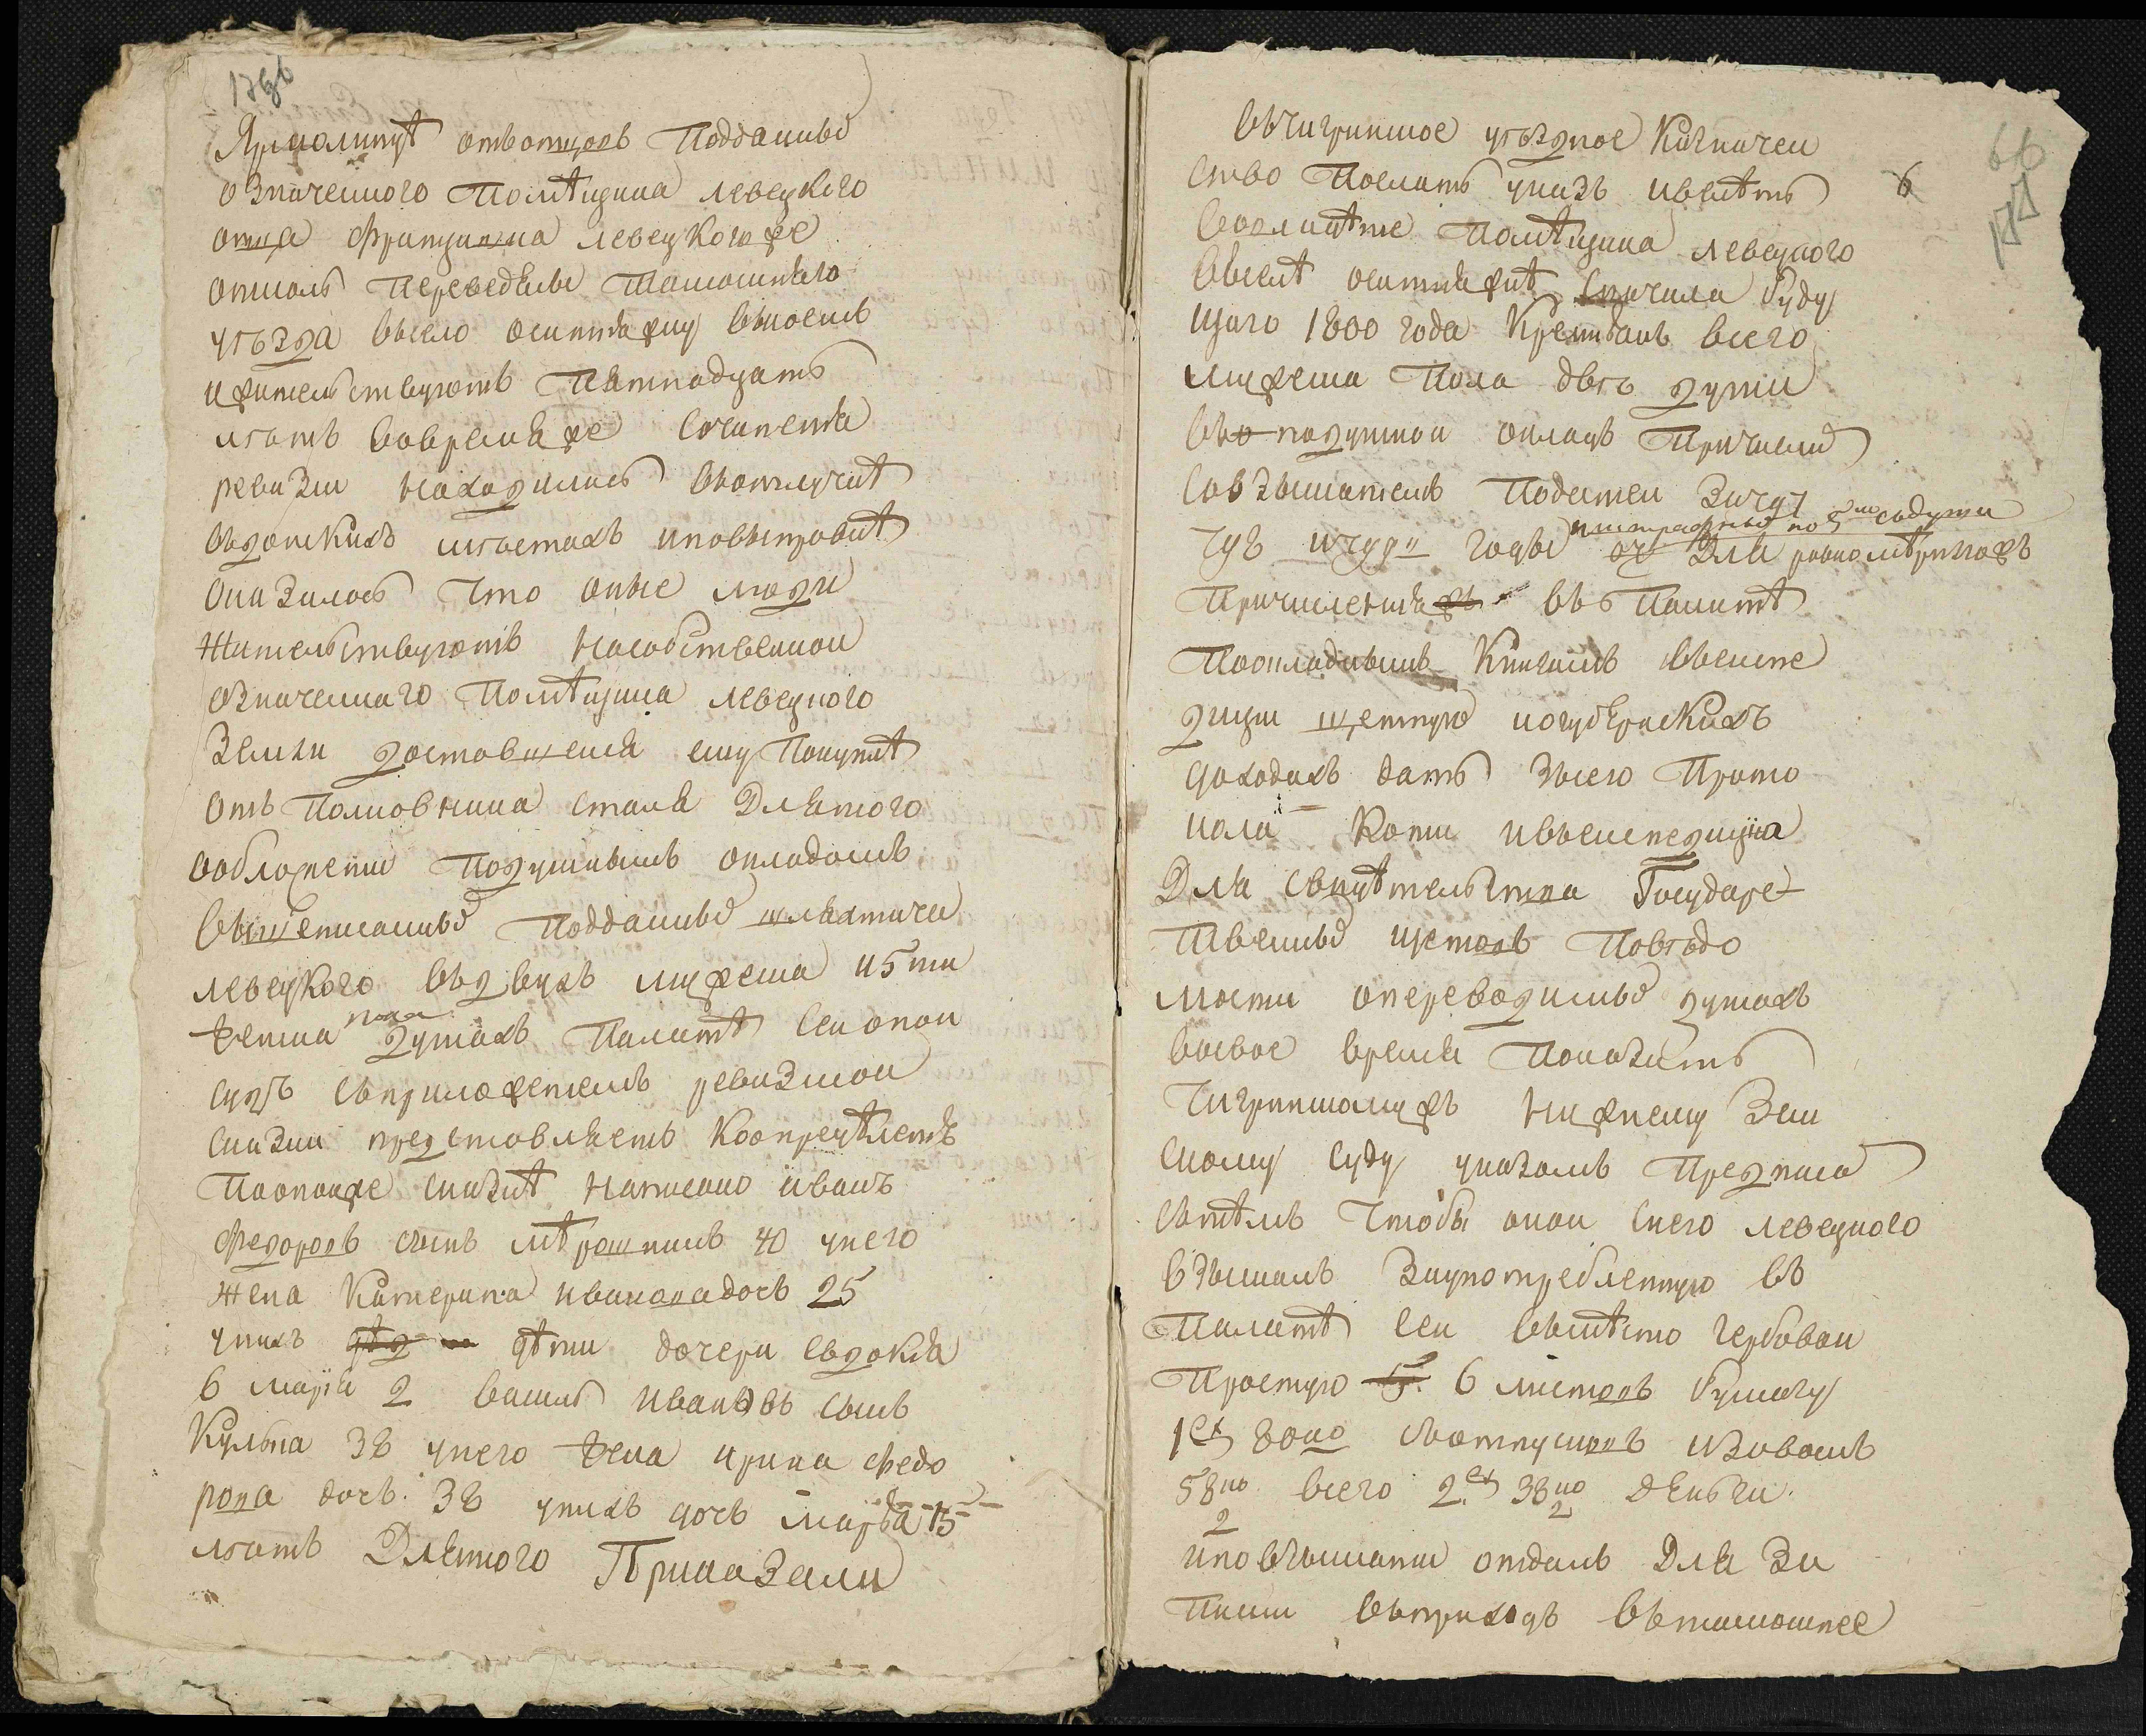 176
Ярмолинцѣ отвотцовъ подданныѣ
означенного помѣщика левецкого
отца францишка левецкогоже
оттоль переведены тамошняго
уѣзда всело оситняжку вкоемъ
ижительствуютъ пятнадцать
лѣтъ вовремяже сочиненія
ревизіи находились вотлучкѣ
вдонскихъ мѣстахъ иповыправкѣ
оказалось что оные люди
жительствуютъ насобственной
означенного помѣщика левецкого
земли доставшейся ему покупкѣ
отъ полковника сталя для того
ообложеніи подушнымъ окладомъ
вышеписанныѣ подданныѣ шляхтича
левецкого въдвухъ мужеска и5ти
женска пола душахъ палатѣ сей оной
судъ съприложеніемъ ревизкой
сказки представляетъ коопредѣленію
поонойже сказкѣ написано иванъ
федоровъ сынъ мѣрошникъ 40 унего
жена катерина иванова дочь 25
унихъ дѣти дочери евдокія
6 марія 2 василь ивановъ сынъ
кульба 38 унего жена ирина федо
рова дочь 38 унихъ дочь марѳа 15
лѣтъ для того Приказали
66
177
6
вчигринское уѣздное казначей
ство послать указъ ивелѣть
состоящие помѣщика левецкого
вселѣ оситняжкѣ сначала буду
щаго 1800 года крестьянъ всего
мужеска пола двѣ души
въ подушной окладъ причисля
совзысканіемъ податей за 797
798 и 799й годы иштрафныѣ по 5ти содуши для равномѣрногожъ
причисленія въ палатѣ
поокладнымъ книгамъ вэкспе
диціи щетную иогубернскихъ
доходахъ дать зсего прото
кола копіи ивэкспедиція
для свидѣтельства государс
твенныѣ щетовъ повѣдо
мости опереводимыѣ душахъ
восвое время показать
чигринскомужъ нижнему зем
скому суду указомъ предписа
съ тѣмъ чтобы оной снего левецкого
взыскалъ заупотребленную въ
палатѣ сей вмѣсто гербовой
простую 6 листовъ бумагу
1 80ко своттусковъ изовомъ
58ко всего 2 38ко деньги
2 2
иповзысканіи отдалъ для за
писки въприходъ втамошнее